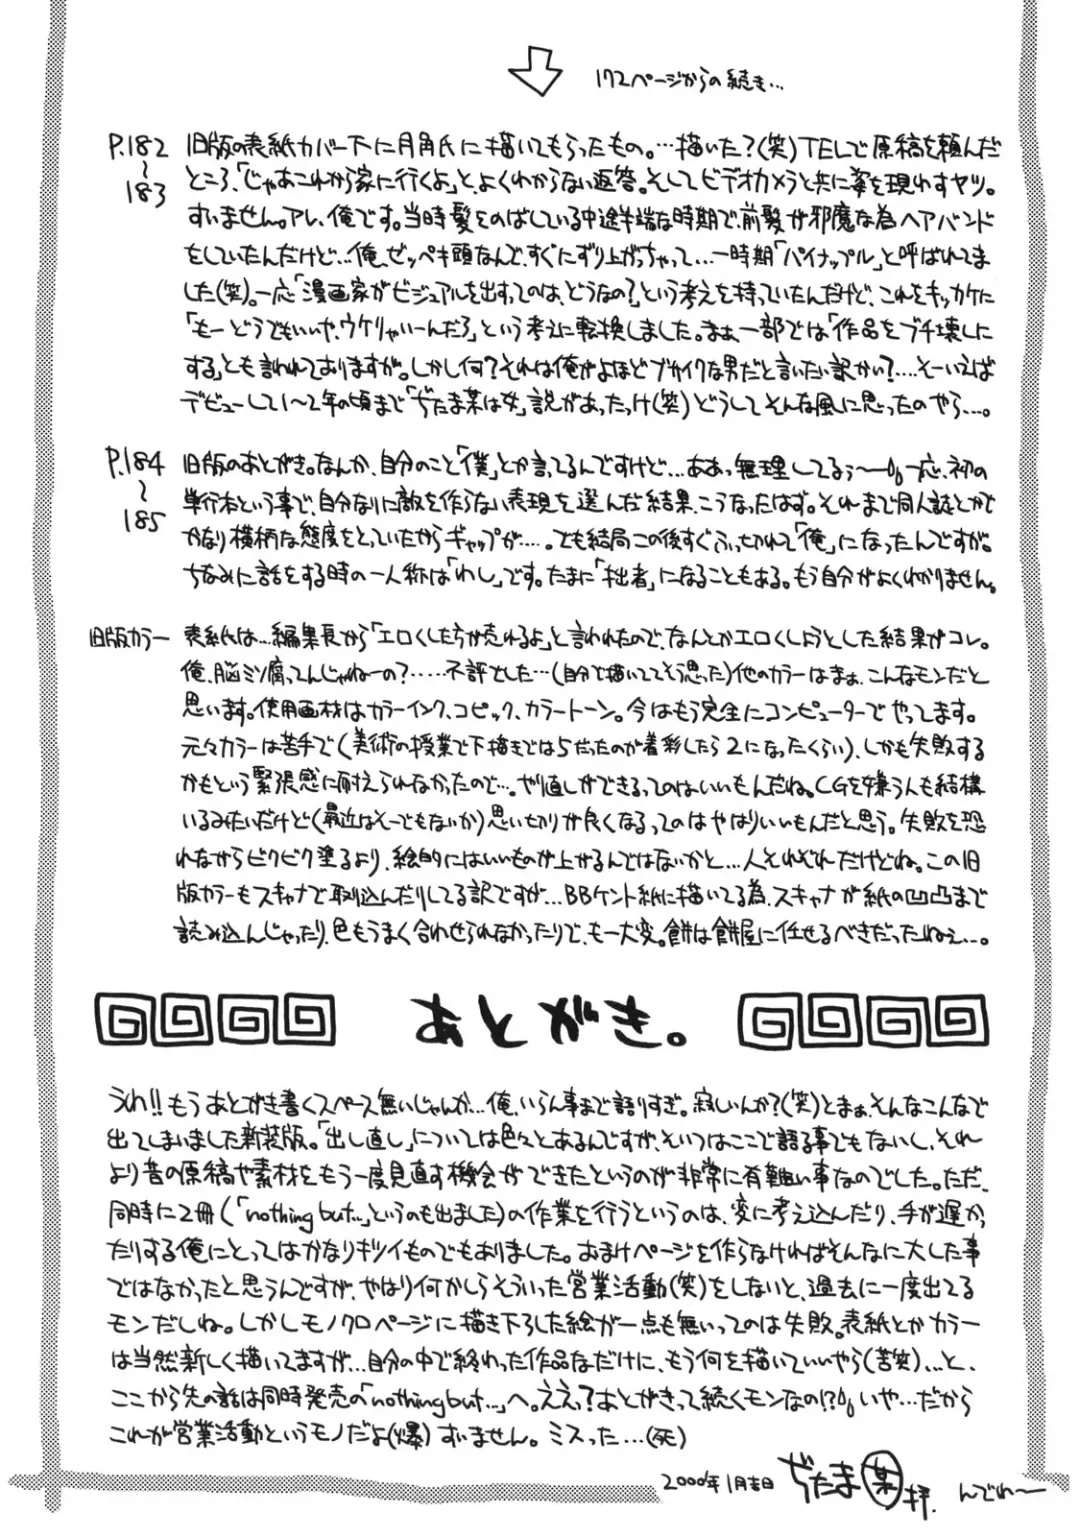 172ページからの続き…
P.182〜183 旧版の表紙カバー下に月角氏に描いてもらったもの。…描いた?(笑)TELで原稿を頼んだ
ところ、「じゃあこれから家に行くよ」と、よくわからない返答。そしてビデオカメラと共に姿を現わすヤツ。
すいません。アレ、俺です。当時髪をのばしている中途半端な時期で、前髪が邪魔な為ヘアバンド
をしていたんだけど…俺、ゼッペキ頭なんで、すぐにずり上がっちゃって…一時期「パイナップル」と呼ばれてま
した(笑)。一応「漫画家がビジュアルを出すってのは、どうなの?」という考えを持っていたんだけど、これをキッカケに
「もーどうでもいいや、ウケリゃいーんだろ」という考えに転換しました。まぁ、一部では「作品をブチ壊しに
する」とも言われておりますが。しかし何?それは俺がよほどブサイクな男だと言いたい訳かい?…そーいえば
デビューして1〜2年の頃まで「ぢたま某は女」説があったっけ(笑)どうしてそんな風に思ったのやら…。
P.184〜185 旧版のあとがき。なんか、自分のこと「僕」とか言ってるんですけど…ああっ無理してるぅ〜一応、初の
単行本という事で、自分なりに敵を作らない表現を選んだ結果、こうなったはず。それまで同人誌とかで
かなり横柄な態度をとっていたからギャップが…。でも結局この後すぐふっきれて「俺」になったんですが。
ちなみに話をする時の一人称は「わし」です。たまに「拙者」になることもある。もう自分がよくわかりません。
旧版カラー 表紙は…編集長から「エロくした方が売れるよ」と言われたので、なんとかエロくしようとした結果がコレ。
俺、脳ミソ腐ってんじゃねーの?……不評でした…(自分で描いててそう思った)他のカラーはまぁ、こんなモンだと
思います。使用画材はカラーインク、コピック、カラートーン。今はもう完全にコンピューターでやってます。
元々カラーは苦手で(美術の授業で下描きでは5だったのが着彩したら2になったくらい)、しかも失敗する
かもという緊張感に耐えられなかったので…。やり直しができるってのはいいもんだね。CGを嫌う人も結構
いるみたいだけど(最近はそーでもないか)思い切りが良くなるってのはやはりいいもんだと思う。失敗を恐
れながらビクビク塗るより、絵的にはいいものが上がるんではないかと…人それぞれだけどね。この旧
版カラーもスキャナで取り込んだりしてる訳ですが…BBケント紙に描いてる為、スキャナが紙の凹凸まで
読み込んじゃったり、色もうまく合わせられなかったりで、もー大変。餅は餅屋に任せるべきだったねぇ…。
あとがき。
うわ!!もうあとがき書くスペース無いじゃんか…俺、いらん事まで語りすぎ。寂しいんか?(笑)とまぁ、そんなこんなで
出てしまいました新装版。「出し直し」については色々とあるんですが、そいつはここで語る事でもないし、それ
より昔の原稿や素材をもう一度見直す機会ができたというのが非常に有難い事なのでした。ただ、
同時に2冊(「nothing but…」というのも出ました)の作業を行うというのは、変に考え込んだり、手が遅かっ
たりする俺にとってはかなりキツイものでもありました。おまけページを作らなければそんなに大した事
ではなかったと思うんですが、やはり何かしらそういった営業活動(笑)をしないと、過去に一度出てる
モンだしね。しかしモノクロページに描き下ろした絵が一点も無いってのは失敗。表紙とかカラー
は当然新しく描いてますが…自分の中で終わった作品なだけに、もう何を描いていいやら(苦笑)…と、
ここから先の話は同時発売の「nothing but…」へ。ええっ?あとがきって続くモンなの!?いや…だから
これが営業活動というモノだよ(爆)すいません。ミスった…(死)
2000年1月吉日 ぢたま某 拝. んでわ〜